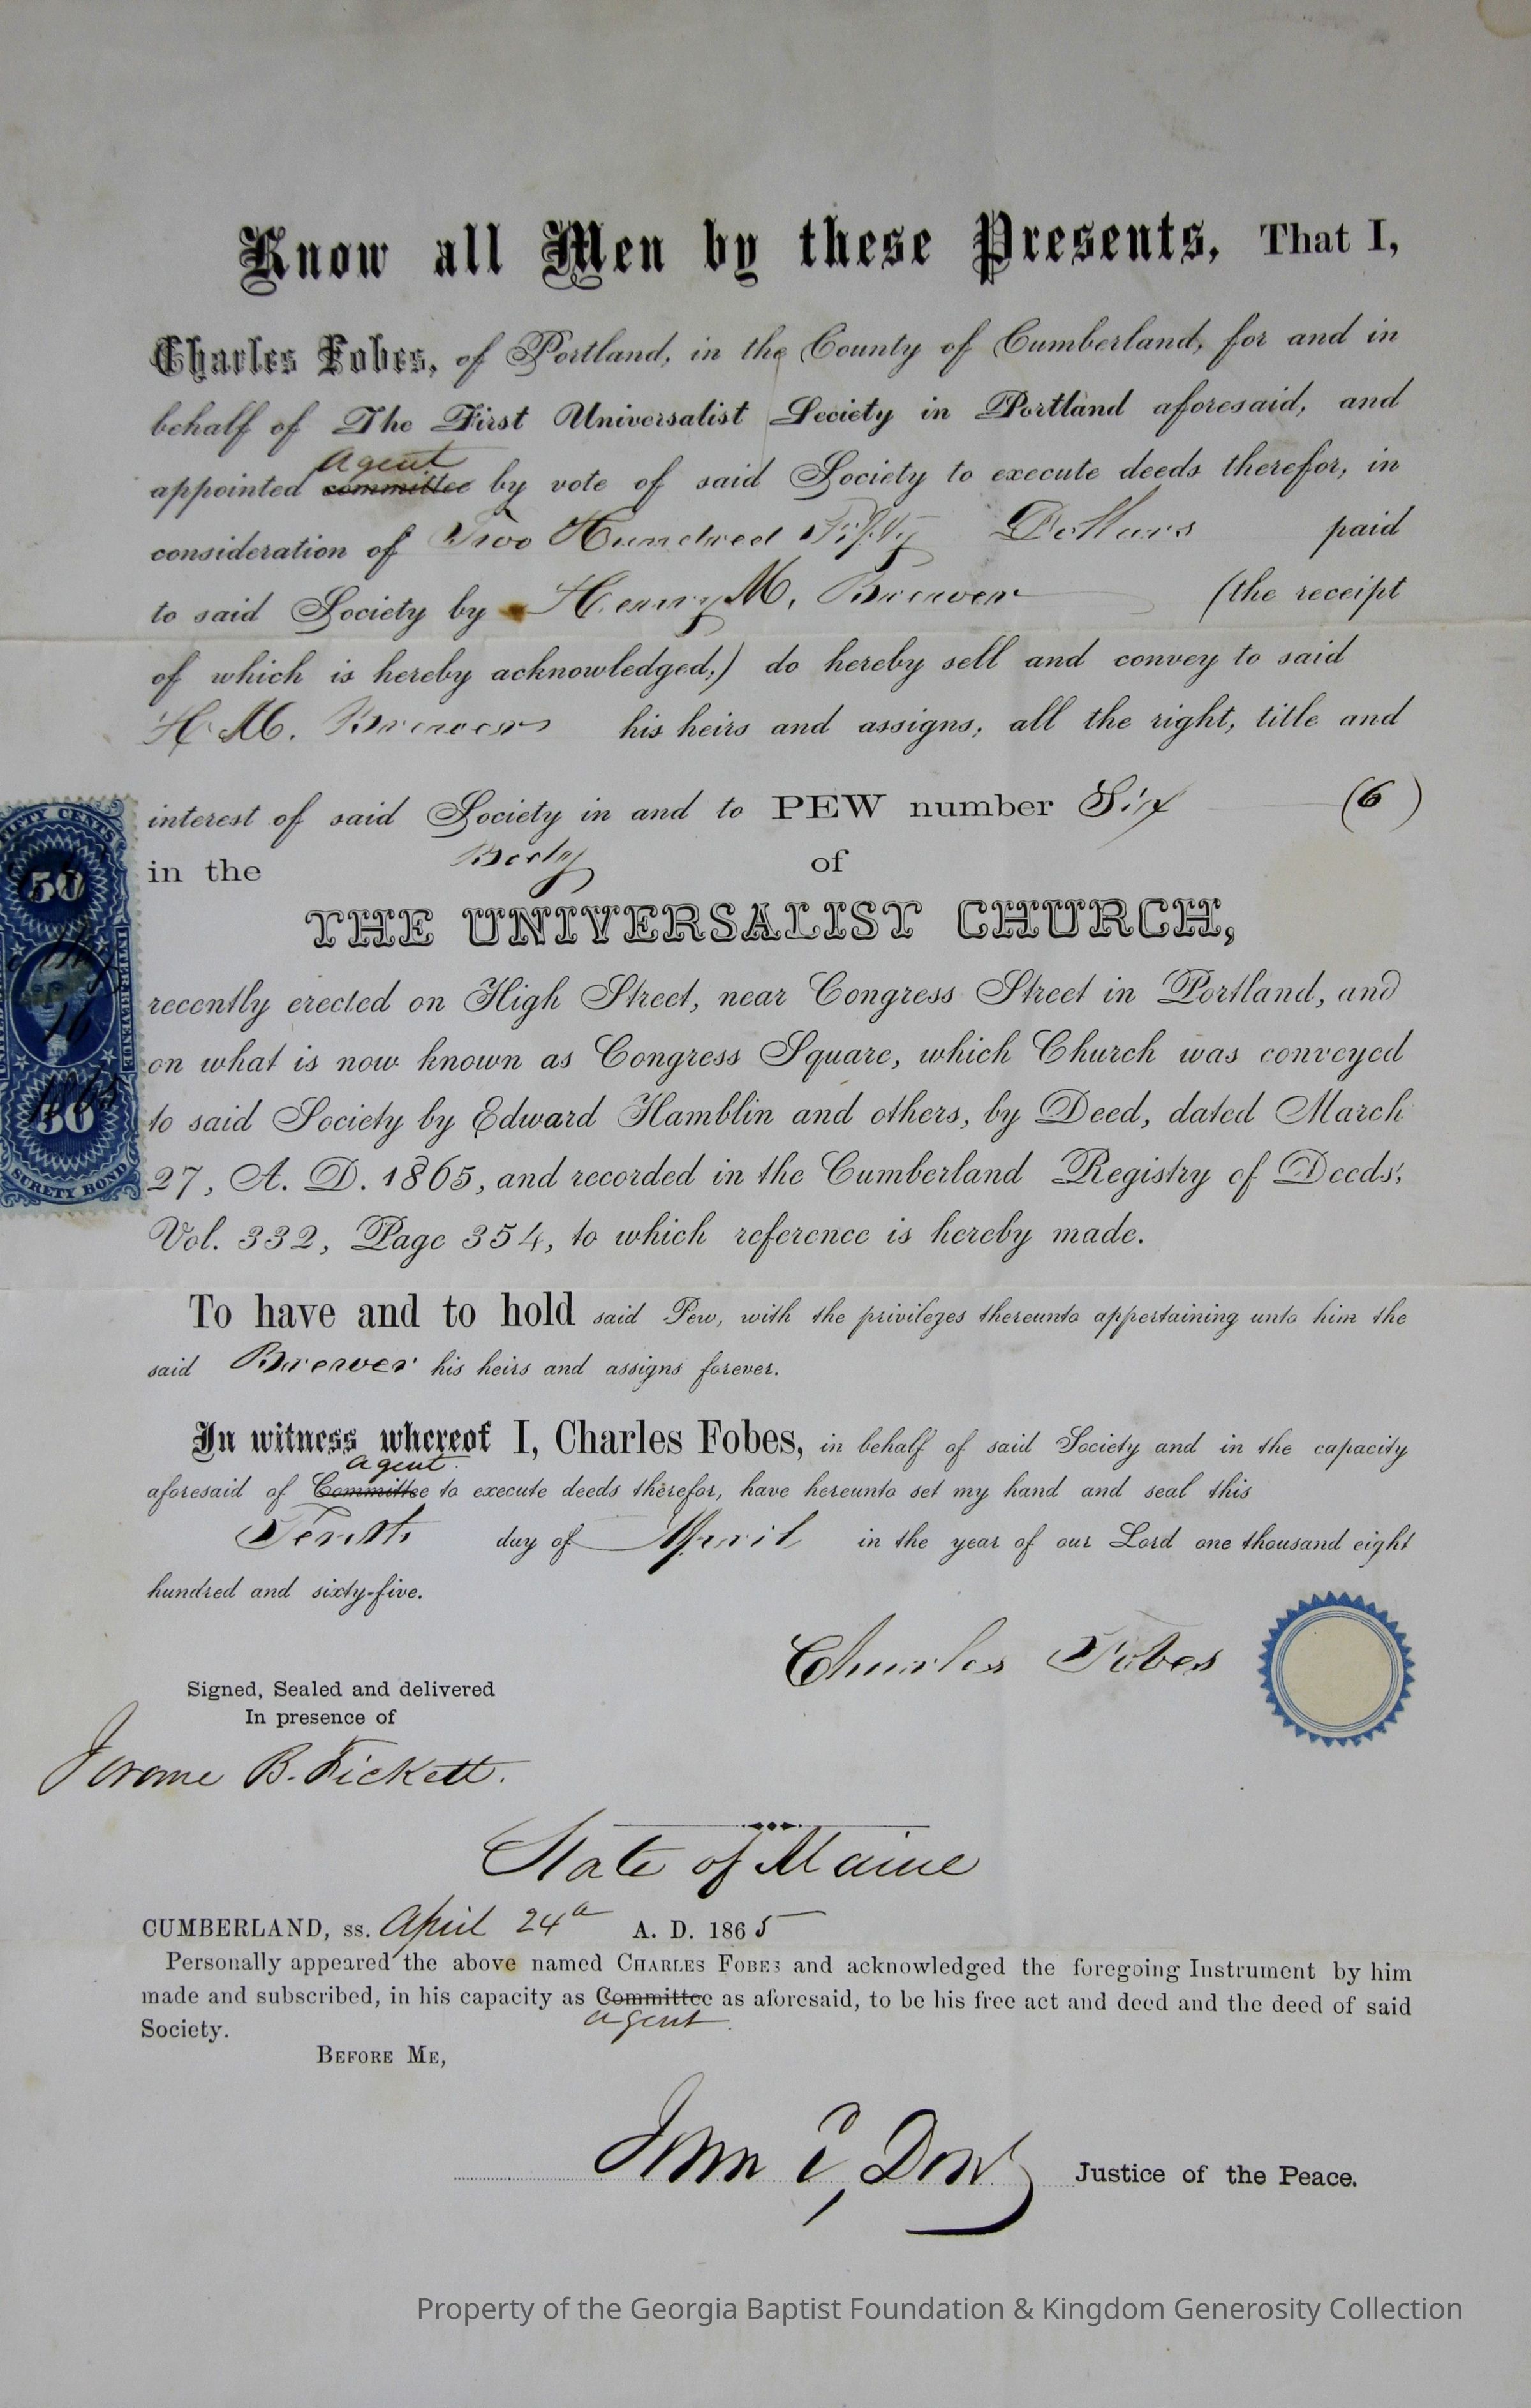 Know all Men by these Presents, That I,
Charles Fobes, of Portland, in the County of Cumberland, for and in
behalf of The First Universalist Society in Portland aforesaid, and
Agent
appointed committee by vote of said Society to execute deeds therefor, in
consideration of Two Hundred Fifty Dollars paid
to said Society by Henry M. Brewer (the receipt
of which is hereby acknowledged,) do hereby sell and convey to said
H. M. Brewer his heirs and assigns, all the right, title and
interest of said Society in and to PEW number Six (6)
in the Body of
THE UNIVERSALIST CHURCH,
recently erected on High Street, near Congress Street in Portland, and
on what is now known as Congress Square, which Church was conveyed
to said Society by Edward Hamblin and others, by Deed, dated March
27, A. D. 1865, and recorded in the Cumberland Registry of Deeds,
Vol. 332, Page 354, to which reference is hereby made.
To have and to hold said Pew, with the privileges thereunto appertaining unto him the
said Brewer his heirs and assigns forever.
In witness whereof I, Charles Fobes, in behalf of said Society and in the capacity
agent
aforesaid of Committee to execute deeds therefor, have hereunto set my hand and seal this
Tenth day of April in the year of our Lord one thousand eight
hundred and sixty-five.
Charles Fobes
Signed, Sealed and delivered
In presence of
Jerome B. Fickett.
State of Maine
CUMBERLAND, ss. April 24th A. D. 1865
Personally appeared the above named CHARLES FOBES and acknowledged the foregoing Instrument by him
made and subscribed, in his capacity as Committee as aforesaid, to be his free act and deed and the deed of said
agent
Society.
BEFORE ME,
John E, Dow Justice of the Peace.
FIFTY CENTS
50
INTER. REVENUE
16
1865
50
SURETY BOND
Property of the Georgia Baptist Foundation & Kingdom Generosity Collection